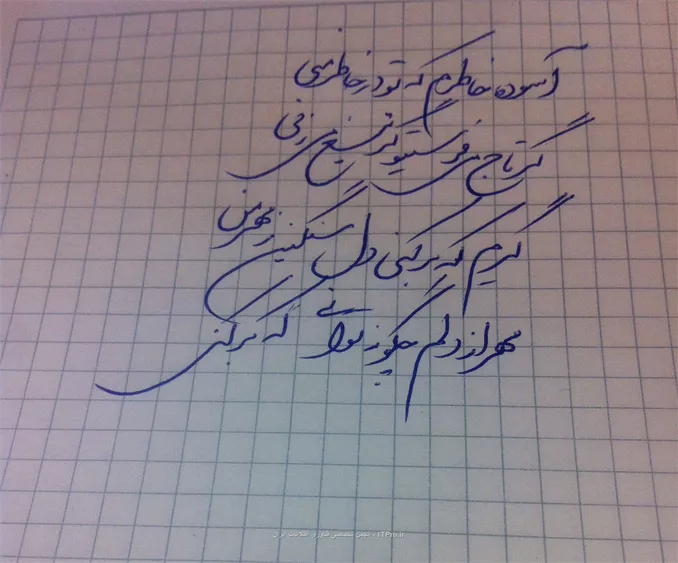 آسوده خاطرم که تو در خاطر منی
گر تاج می فرستی و گر تیغ می زنی
گیرم که برکنی دل سنگین ز مهر من
مهر از دلم چگونه توانی که برکنی
ITPro.ir - انجمن تخصصی فناوری اطلاعات ایران